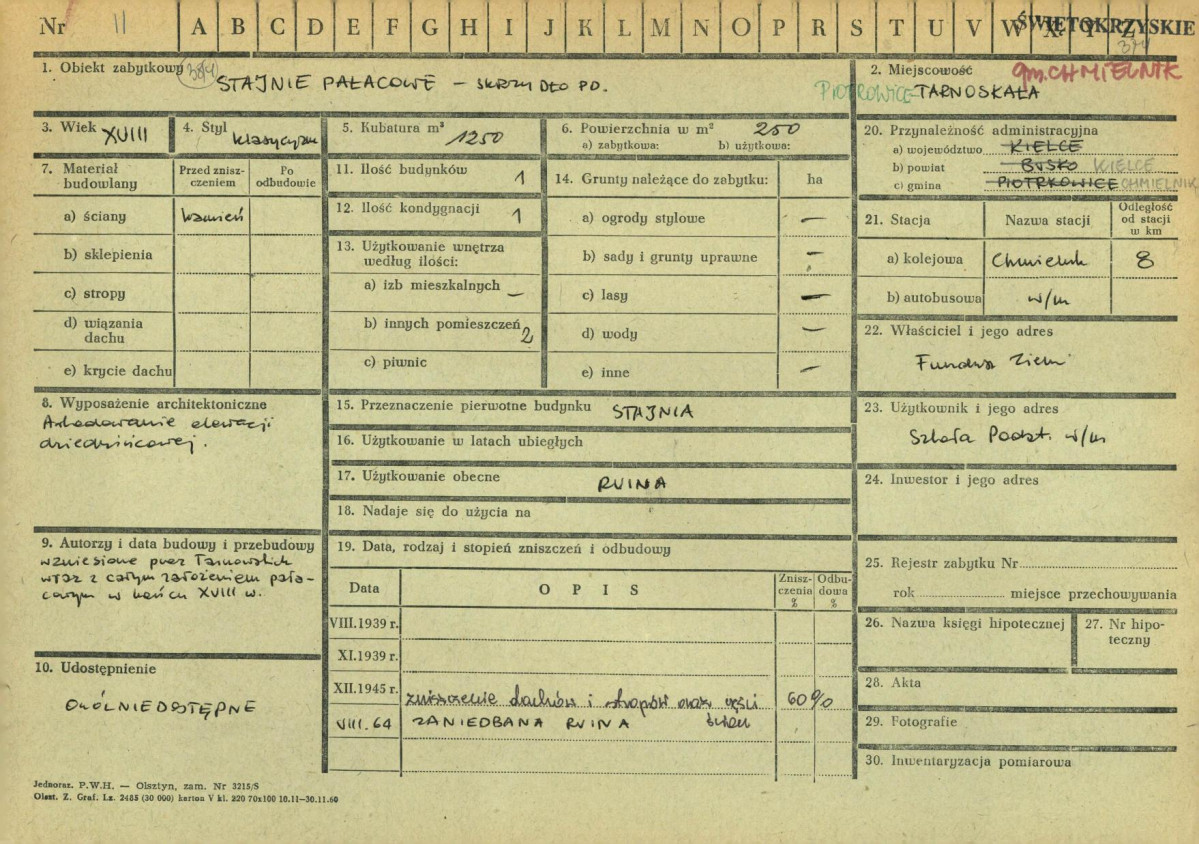 Nr 11 A B C D E F G H I J K L M N O P R S T U V W X Y Z ŚWIĘTOKRZYSKIE
374
1. Obiekt zabytkowy
STAJNIE PAŁACOWE – SKRZYDŁO PD.
2. Miejscowość gm. CHMIELNIK
PIOTROWICE TARNOSKAŁA
3. Wiek XVIII
4. Styl klasycyzm
5. Kubatura m³ 1250
6. Powierzchnia w m² 250
a) zabytkowa: b) użytkowa:
7. Materiał budowlany
Przed zniszczeniem
Po odbudowie
a) ściany kamień
b) sklepienia
c) stropy
d) wiązania dachu
e) krycie dachu
8. Wyposażenie architektoniczne
Arkadowanie elewacji
dziedzińcowej.
9. Autorzy i data budowy i przebudowy
wzniesione przez Tarnowskich
wraz z całym założeniem pała-
cowym w końcu XVIII w.
10. Udostępnienie
OGÓLNIEDOSTĘPNE
11. Ilość budynków 1
12. Ilość kondygnacji 1
13. Użytkowanie wnętrza
według ilości:
a) izb mieszkalnych –
b) innych pomieszczeń 2
c) piwnic
14. Grunty należące do zabytku: ha
a) ogrody stylowe –
b) sady i grunty uprawne –
c) lasy –
d) wody –
e) inne –
15. Przeznaczenie pierwotne budynku STAJNIA
16. Użytkowanie w latach ubiegłych
17. Użytkowanie obecne RUINA
18. Nadaje się do użycia na
19. Data, rodzaj i stopień zniszczeń i odbudowy
Data OPIS Zniszczenia % Odbudowa %
VIII.1939 r.
XI.1939 r.
XII.1945 r. zniszczenie dachów i stropów oraz części ścian 60%
VIII.64 ZANIEDBANA RUINA
20. Przynależność administracyjna
a) województwo KIELCE
b) powiat BUSKO KIELCE
c) gmina PIOTRKOWICE CHMIELNIK
21. Stacja Nazwa stacji Odległość od stacji w km
a) kolejowa Chmielnik 8
b) autobusowa w/m
22. Właściciel i jego adres
Fundusz Ziemi
23. Użytkownik i jego adres
Szkoła Podst. w/m
24. Inwestor i jego adres
25. Rejestr zabytku Nr
rok miejsce przechowywania
26. Nazwa księgi hipotecznej
27. Nr hipoteczny
28. Akta
29. Fotografie
30. Inwentaryzacja pomiarowa
Jednoraz. P.W.H. — Olsztyn, zam. Nr 3215/S
Olszt. Z. Graf. Lz. 2485 (30 000) karton V kl. 220 70x100 10.11—30.11.60